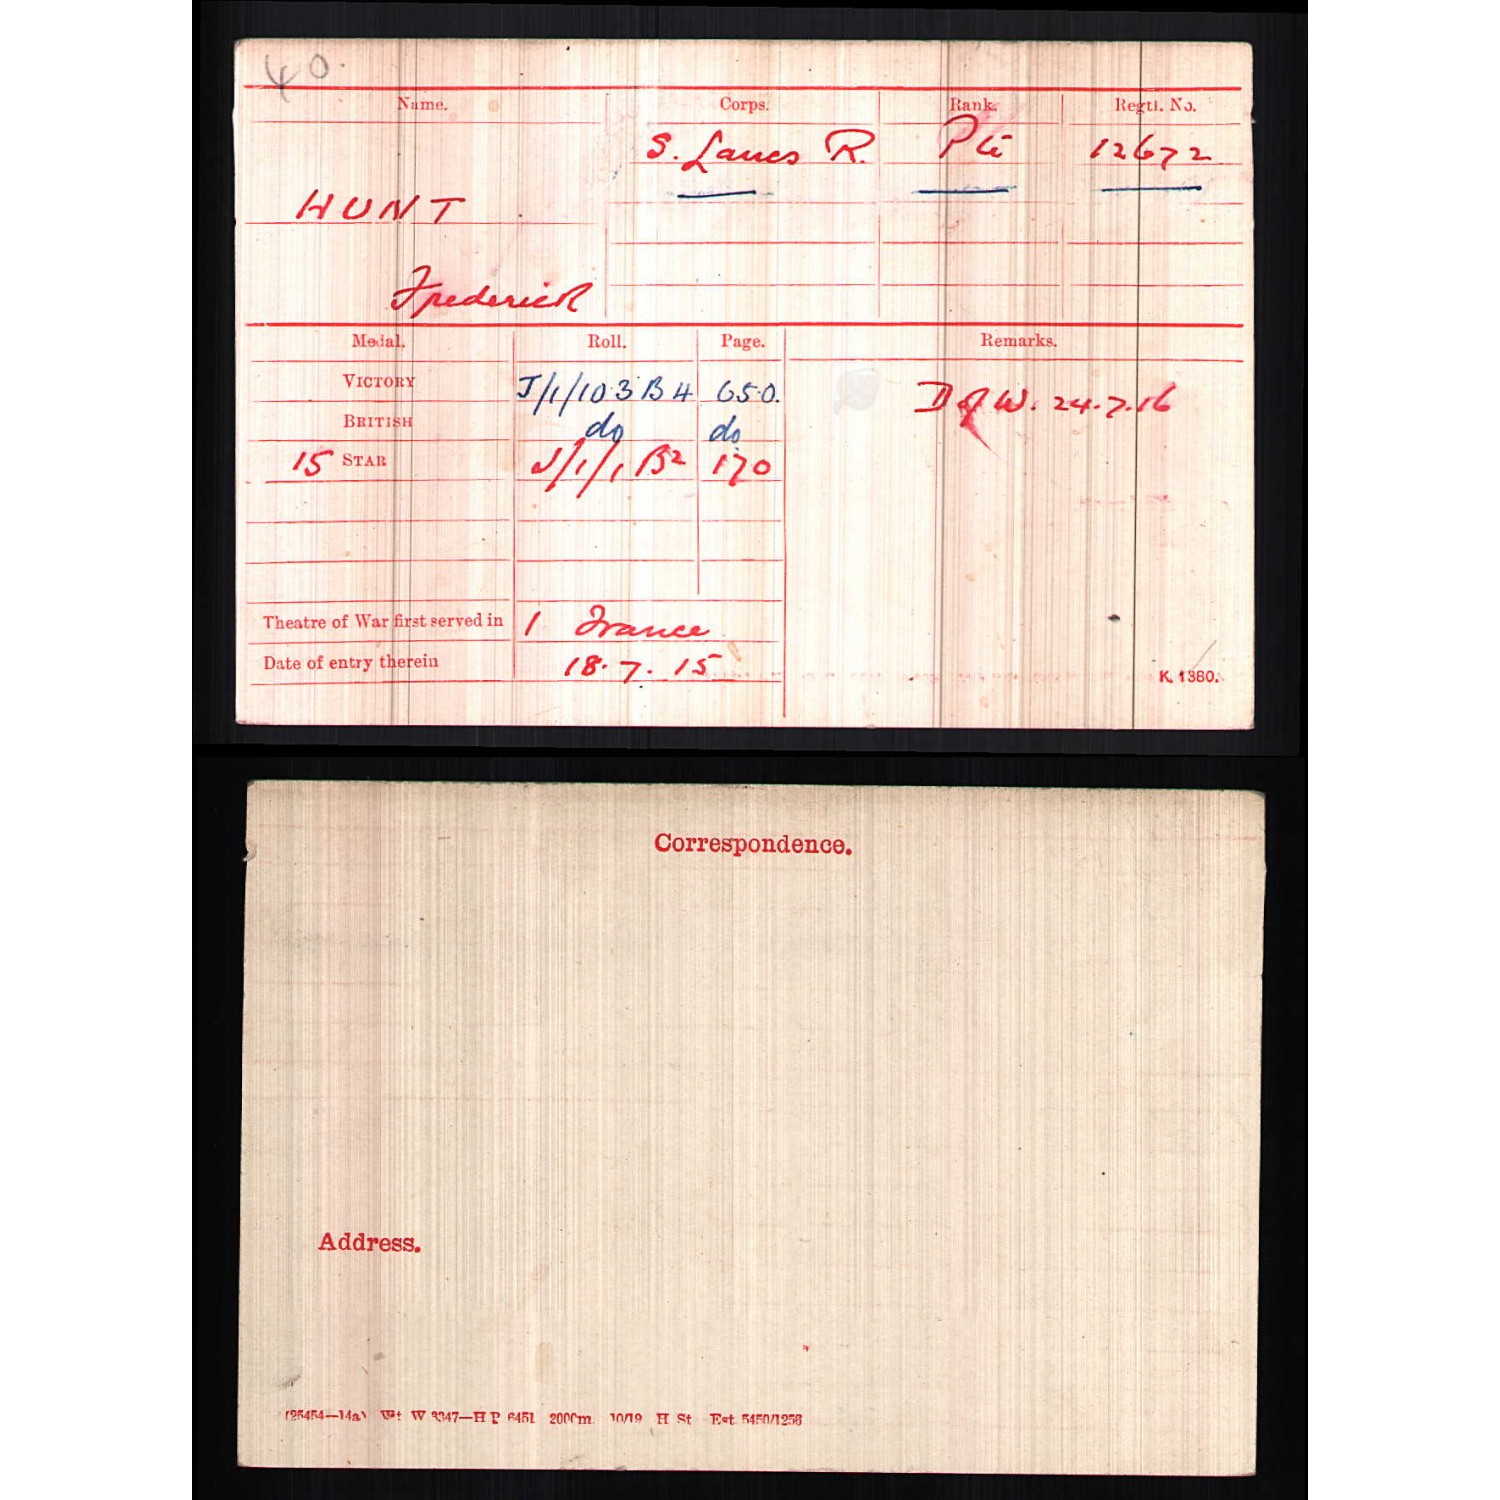 40.
Name. Corps. Rank. Regtl. No.
S. Lancs R. Pte 12672
HUNT
Frederick
Medal. Roll. Page. Remarks.
VICTORY J/1/103 B4 650. D of W. 24.7.16
BRITISH do do
15 STAR J/1/1 B2 170
Theatre of War first served in 1 France
Date of entry therein 18.7.15
K. 1380.
Correspondence.
Address.
(25454—14a) Wt W 3347—H P 6451 2000m. 10/19 H St Est. 5450/1256